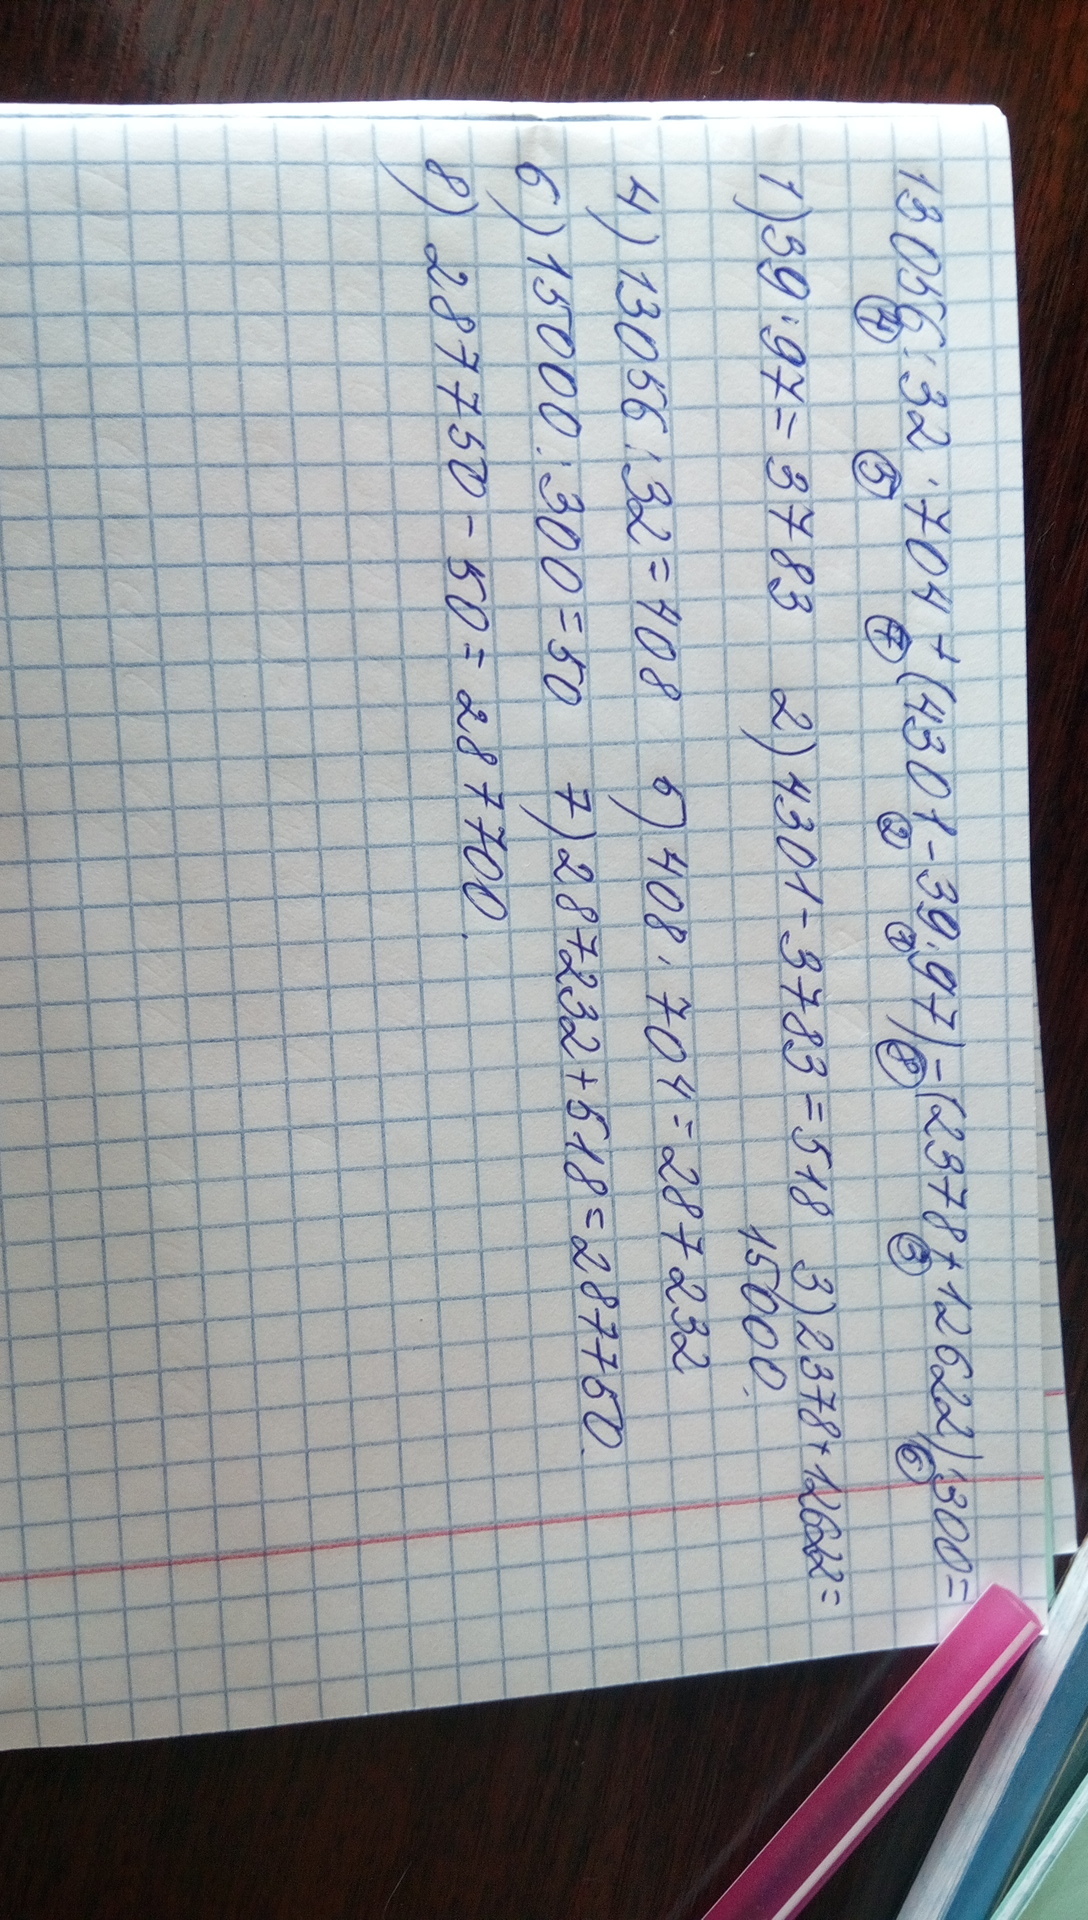 13056:32·704+(4301-39·97)-(2378+12622):300=
4 5 7 2 1 8 3 6
1)39·97=3783 2)4301-3783=518 3)2378+12622=
15000.
4)13056:32=408 5)408·704=287232
6)15000:300=50 7)287232+518=287750.
8) 287750-50=287700.